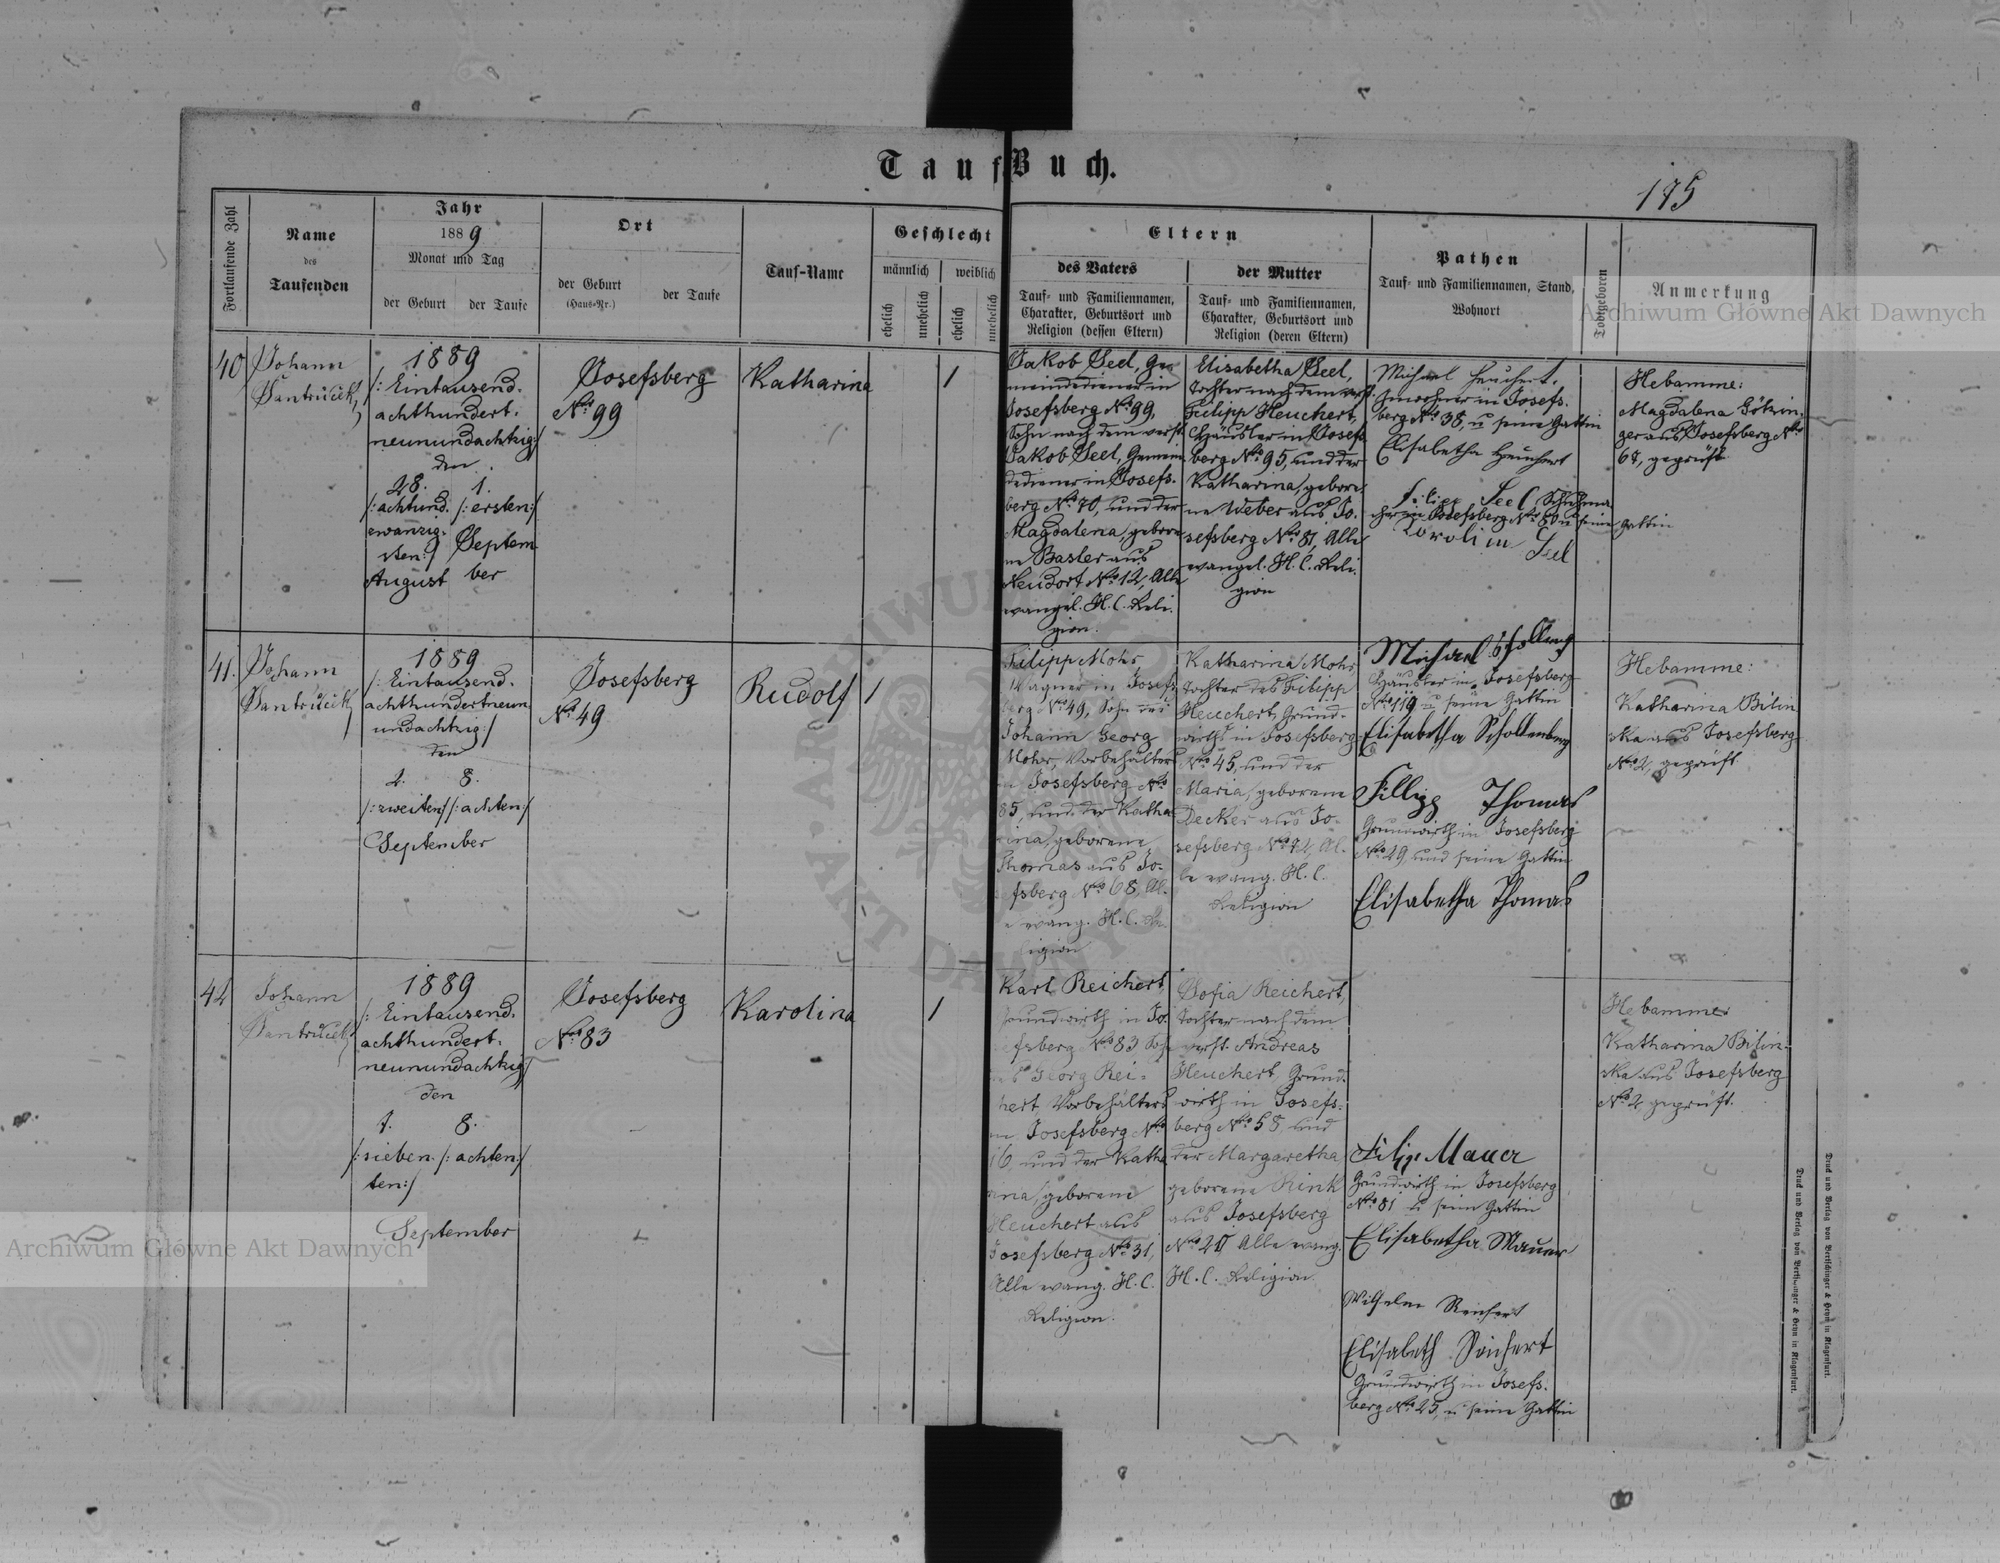 Tauf Buch.
175
Fortlaufende Zahl
Name
des
Taufenden
Jahr
1889
Monat und Tag
der Geburt
der Taufe
Ort
der Geburt
(Haus-Nr.)
der Taufe
Tauf-Name
Geschlecht
männlich
weiblich
ehelich
unehelich
ehelich
unehelich
Eltern
des Vaters
Tauf- und Familiennamen,
Charakter, Geburtsort und
Religion (dessen Eltern)
der Mutter
Tauf- und Familiennamen,
Charakter, Geburtsort und
Religion (deren Eltern)
Pathen
Tauf- und Familiennamen, Stand,
Wohnort
Todtgeboren
Anmerkung
Archiwum Główne Akt Dawnych
40
Johann
1889
/: Eintausend-
achthundert-
neunundachtzig:/
den
28. 1.
/:achtund- /:ersten:/
zwanzig-
sten:/ Septem-
August ber
Josefsberg
No 99
Katharina
1
Jakob Seel, Ge-
meindediener in
Josefsberg No 99,
Sohn nach dem verst.
Jakob Seel, Gemein-
dediener in Josefs-
berg No 70, und der
Magdalena, gebore-
ne Basler aus
Neudorf No 12, Alle
evangel. H. C. Reli-
gion.
Elisabetha Seel,
Tochter nach dem verst.
Filipp Heuchert,
Häusler in Josefs-
berg No 95, und der
Katharina, gebore-
ne Weber aus Jo-
sefsberg No 81, Alle
evangel. H. C. Reli-
gion
Michael Heuchert,
Inwohner in Josefs-
berg No 38, u seine Gattin
Elisabetha Heuchert
Filipp Seel, Schuhma-
cher in Josefsberg No 80 u seine Gattin
Karolina Seel
Hebamme:
Magdalena Götzin-
ger aus Josefsberg No
68, geprüft
41.
Johann
1889
/: Eintausend-
achthundertneun-
undachtzig:/
den
2. 8.
/:zweiten:/ /:achten:/
September
Josefsberg
No 49
Rudolf
1
Filipp Mohr,
Wagner in Josefs-
berg No 49, Sohn des
Johann Georg
Mohr, Vorbehälters
in Josefsberg No
85, und der Katha-
rina, geborene
Thomas aus Jo-
sefsberg No 68, Al-
le evang. H. C. Re-
ligion
Katharina Mohr,
Tochter des Filipp
Heuchert, Grund-
wirths in Josefsberg
No 45, und der
Maria, geborene
Decker aus Jo-
sefsberg No 72, Al-
le evang. H. C.
Religion
Michael
Häusler in Josefsberg
No 119 u seine Gattin
Elisabetha Schollenberg
Fillipp Thomas
Grundwirth in Josefsberg
No 29, und seine Gattin
Elisabetha Thomas
Hebamme:
Katharina Bilin-
ska aus Josefsberg
No 2, geprüft
42
Johann
1889
/: Eintausend-
achthundert-
neunundachtzig:/
den
7. 8.
/:sieben- /:achten:/
ten:/
September
Josefsberg
No 83
Karolina
1
Karl Reichert,
Grundwirth in Jo-
sefsberg No 83 Sohn
des Georg Rei-
chert, Vorbehälters
in Josefsberg No
16, und der Katha-
rina, geborene
Heuchert aus
Josefsberg No 31,
Alle evang. H. C.
Religion.
Sofia Reichert,
Tochter nach dem
verst. Andreas
Heuchert, Grund-
wirth in Josefs-
berg No 58, und
der Margaretha,
geborene Rink
aus Josefsberg
No 27 Alle evang.
H. C. Religion
Filipp Mauer
Grundwirth in Josefsberg
No 81 u seine Gattin
Elisabetha Mauer
Wilhelm Reichert
Elisabeth Reichert
Grundwirth in Josefs-
berg No 25, u seine Gattin
Hebamme:
Katharina Bilin-
ska aus Josefsberg
No 2, geprüft.
Archiwum Główne Akt Dawnych
ARCHIWUM GŁÓWNE AKT DAWNYCH
Druck und Verlag von Bertschinger & Heyn in Klagenfurt.
Druck und Verlag von Bertschinger & Heyn in Klagenfurt.